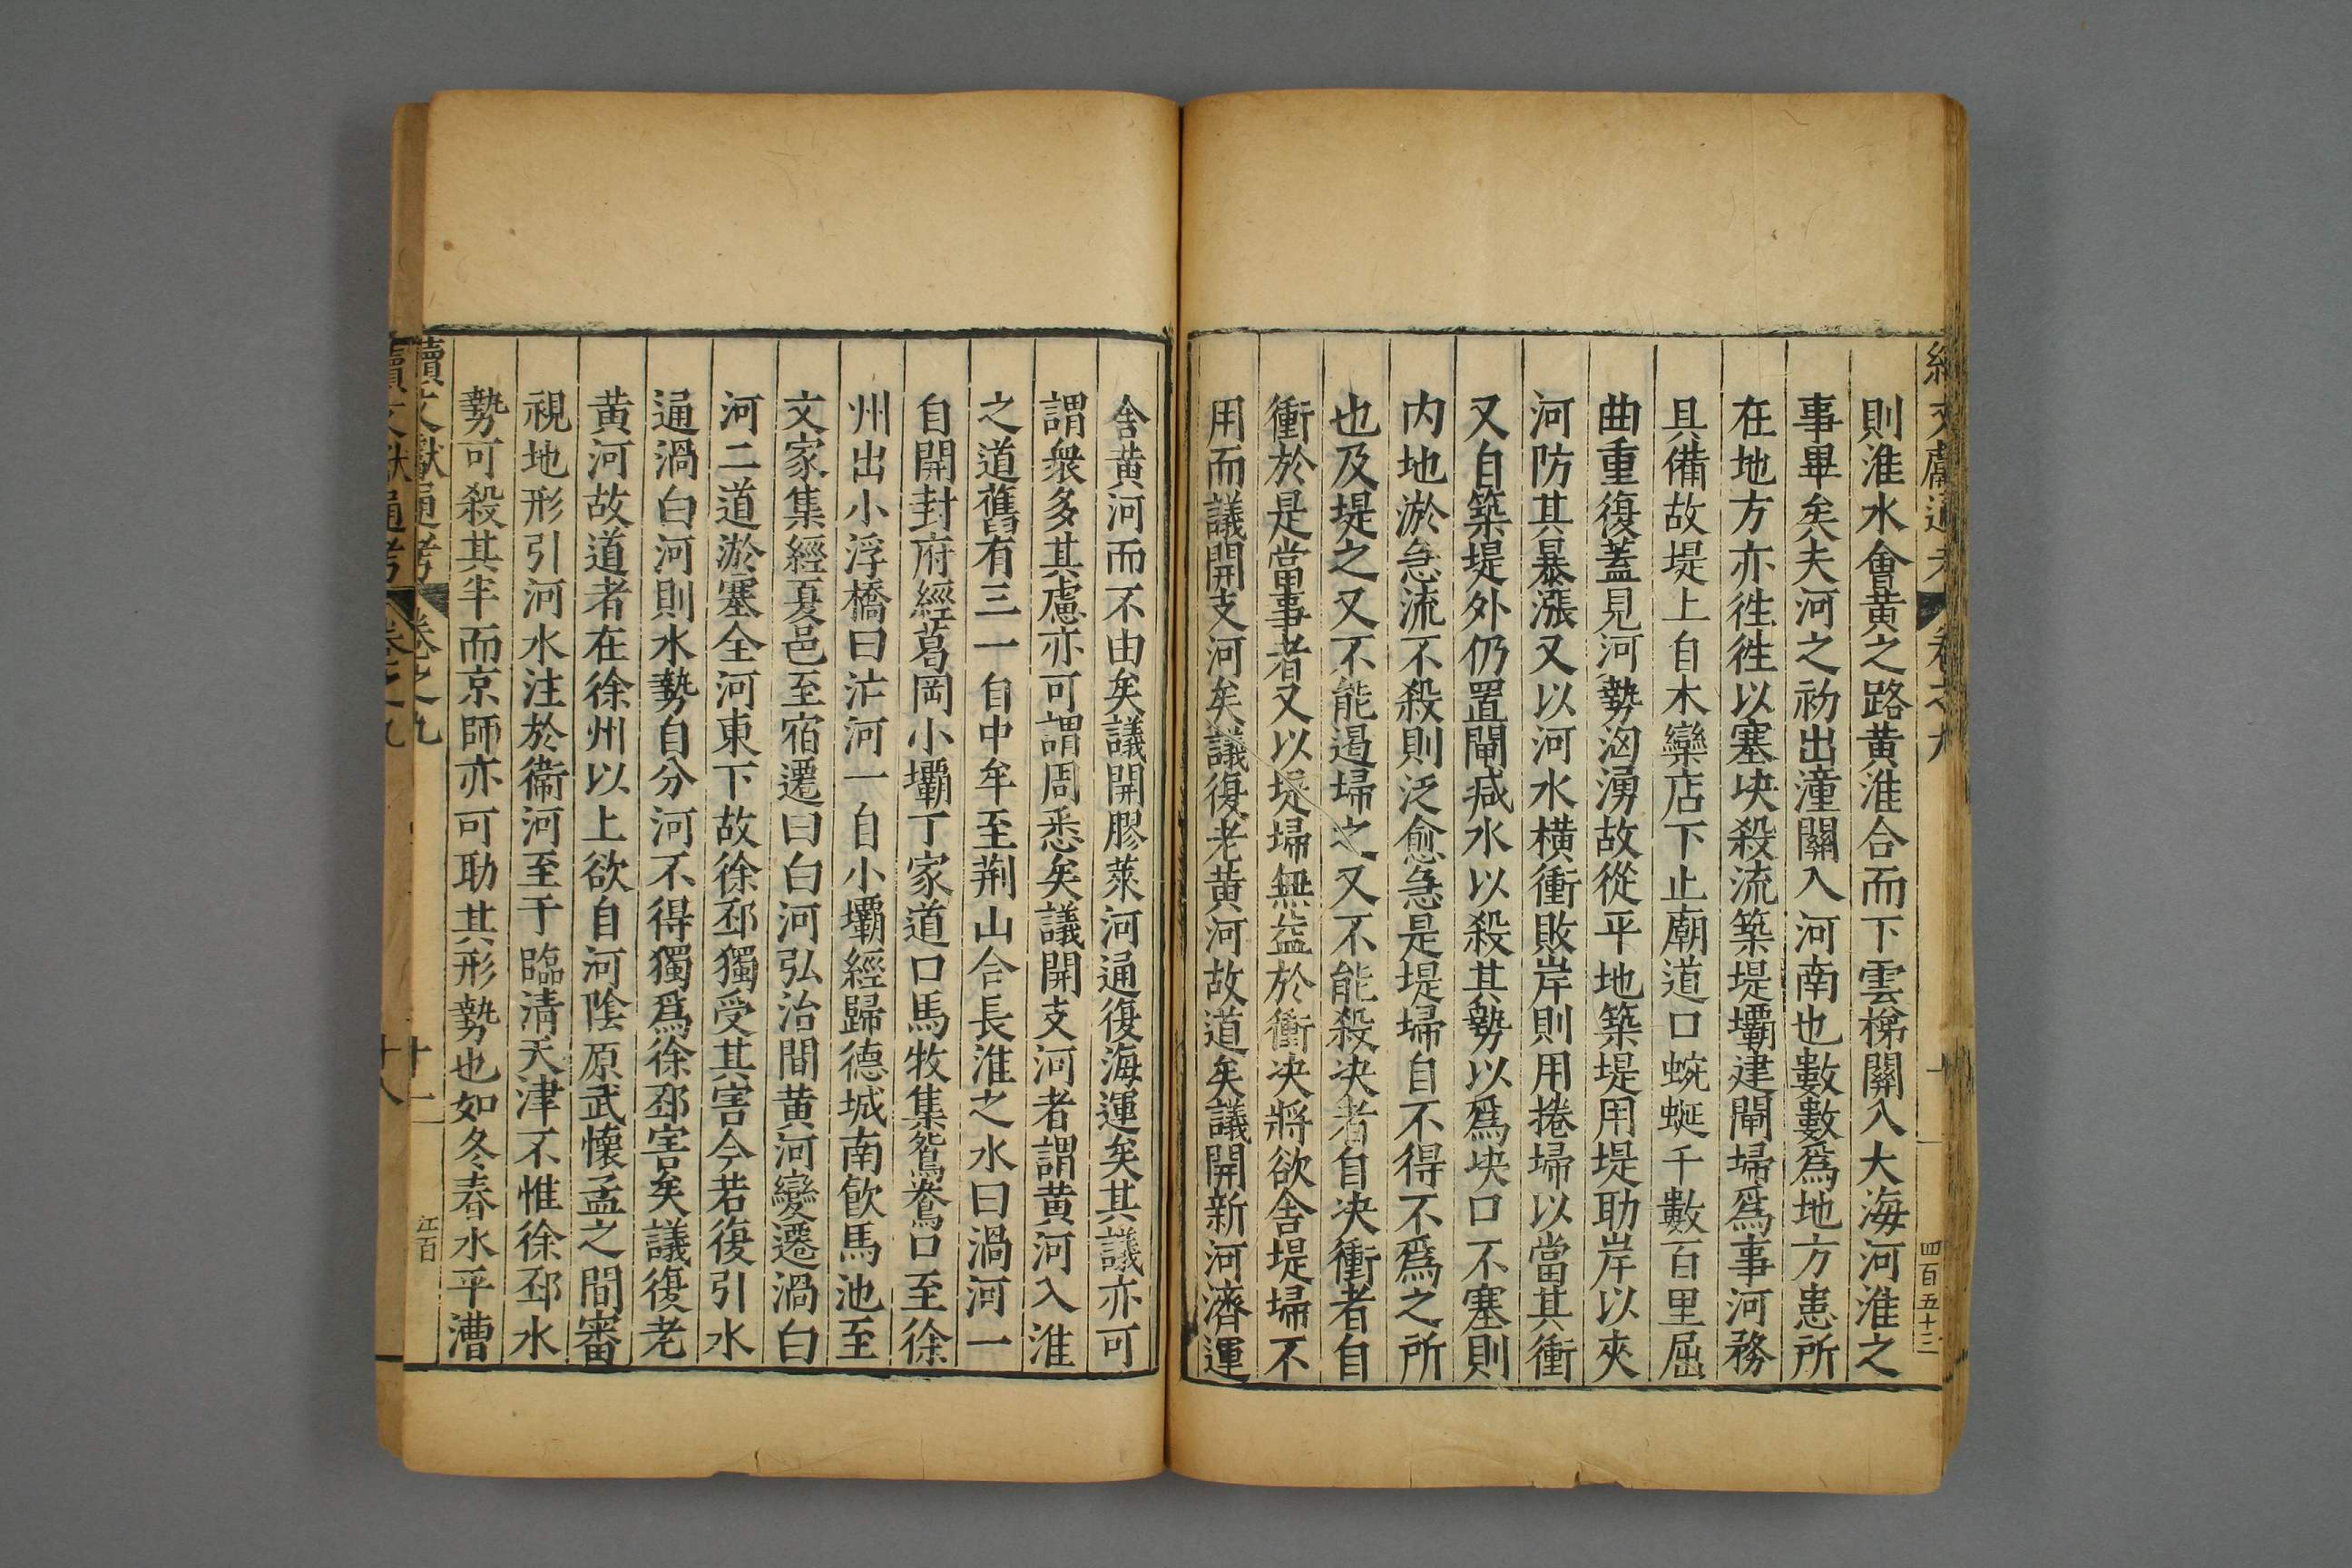 則淮水會黄之路黄淮合而下雲梯關入大海河淮之
事畢矣夫河之初出潼關入河南也數數爲地方患所
在地方亦徃徃以塞决殺流築堤壩建閘埽爲事河務
具備故堤上自木欒店下止廟道口蜿蜒千數百里屈
曲重復蓋見河勢洶湧故從平地築堤用堤助岸以夾
河防其暴漲又以河水橫衝敗岸則用捲埽以當其衝
又自築堤外仍置閘减水以殺其勢以爲决口不塞則
内地淤急流不殺則泛愈急是堤埽自不得不爲之所
也及堤之又不能遏埽之又不能殺决者自决衝者自
衝於是當事者又以堤埽無益於衝决將欲舍堤埽不
用而議開支河矣議復老黄河故道矣議開新河濟運
舍黄河而不由矣議開膠萊河通復海運矣其議亦可
謂衆多其慮亦可謂周悉矣議開支河者謂黄河入淮
之道舊有三一自中牟至荆山合長淮之水曰渦河一
自開封府經葛岡小壩丁家道口馬牧集鴛鴦口至徐
州出小浮橋曰汴河一自小壩經歸德城南飮馬池至
文家集經夏邑至宿遷曰白河弘治間黄河變遷渦白
河二道淤塞全河東下故徐邳獨受其害今若復引水
通渦白河則水勢自分河不得獨爲徐邳害矣議復老
黄河故道者在徐州以上欲自河陰原武懷孟之間審
視地形引河水注於衞河至于臨清天津不惟徐邳水
勢可殺其半而京師亦可助其形勢也如冬春水平漕
續文獻通考 卷之九 江百